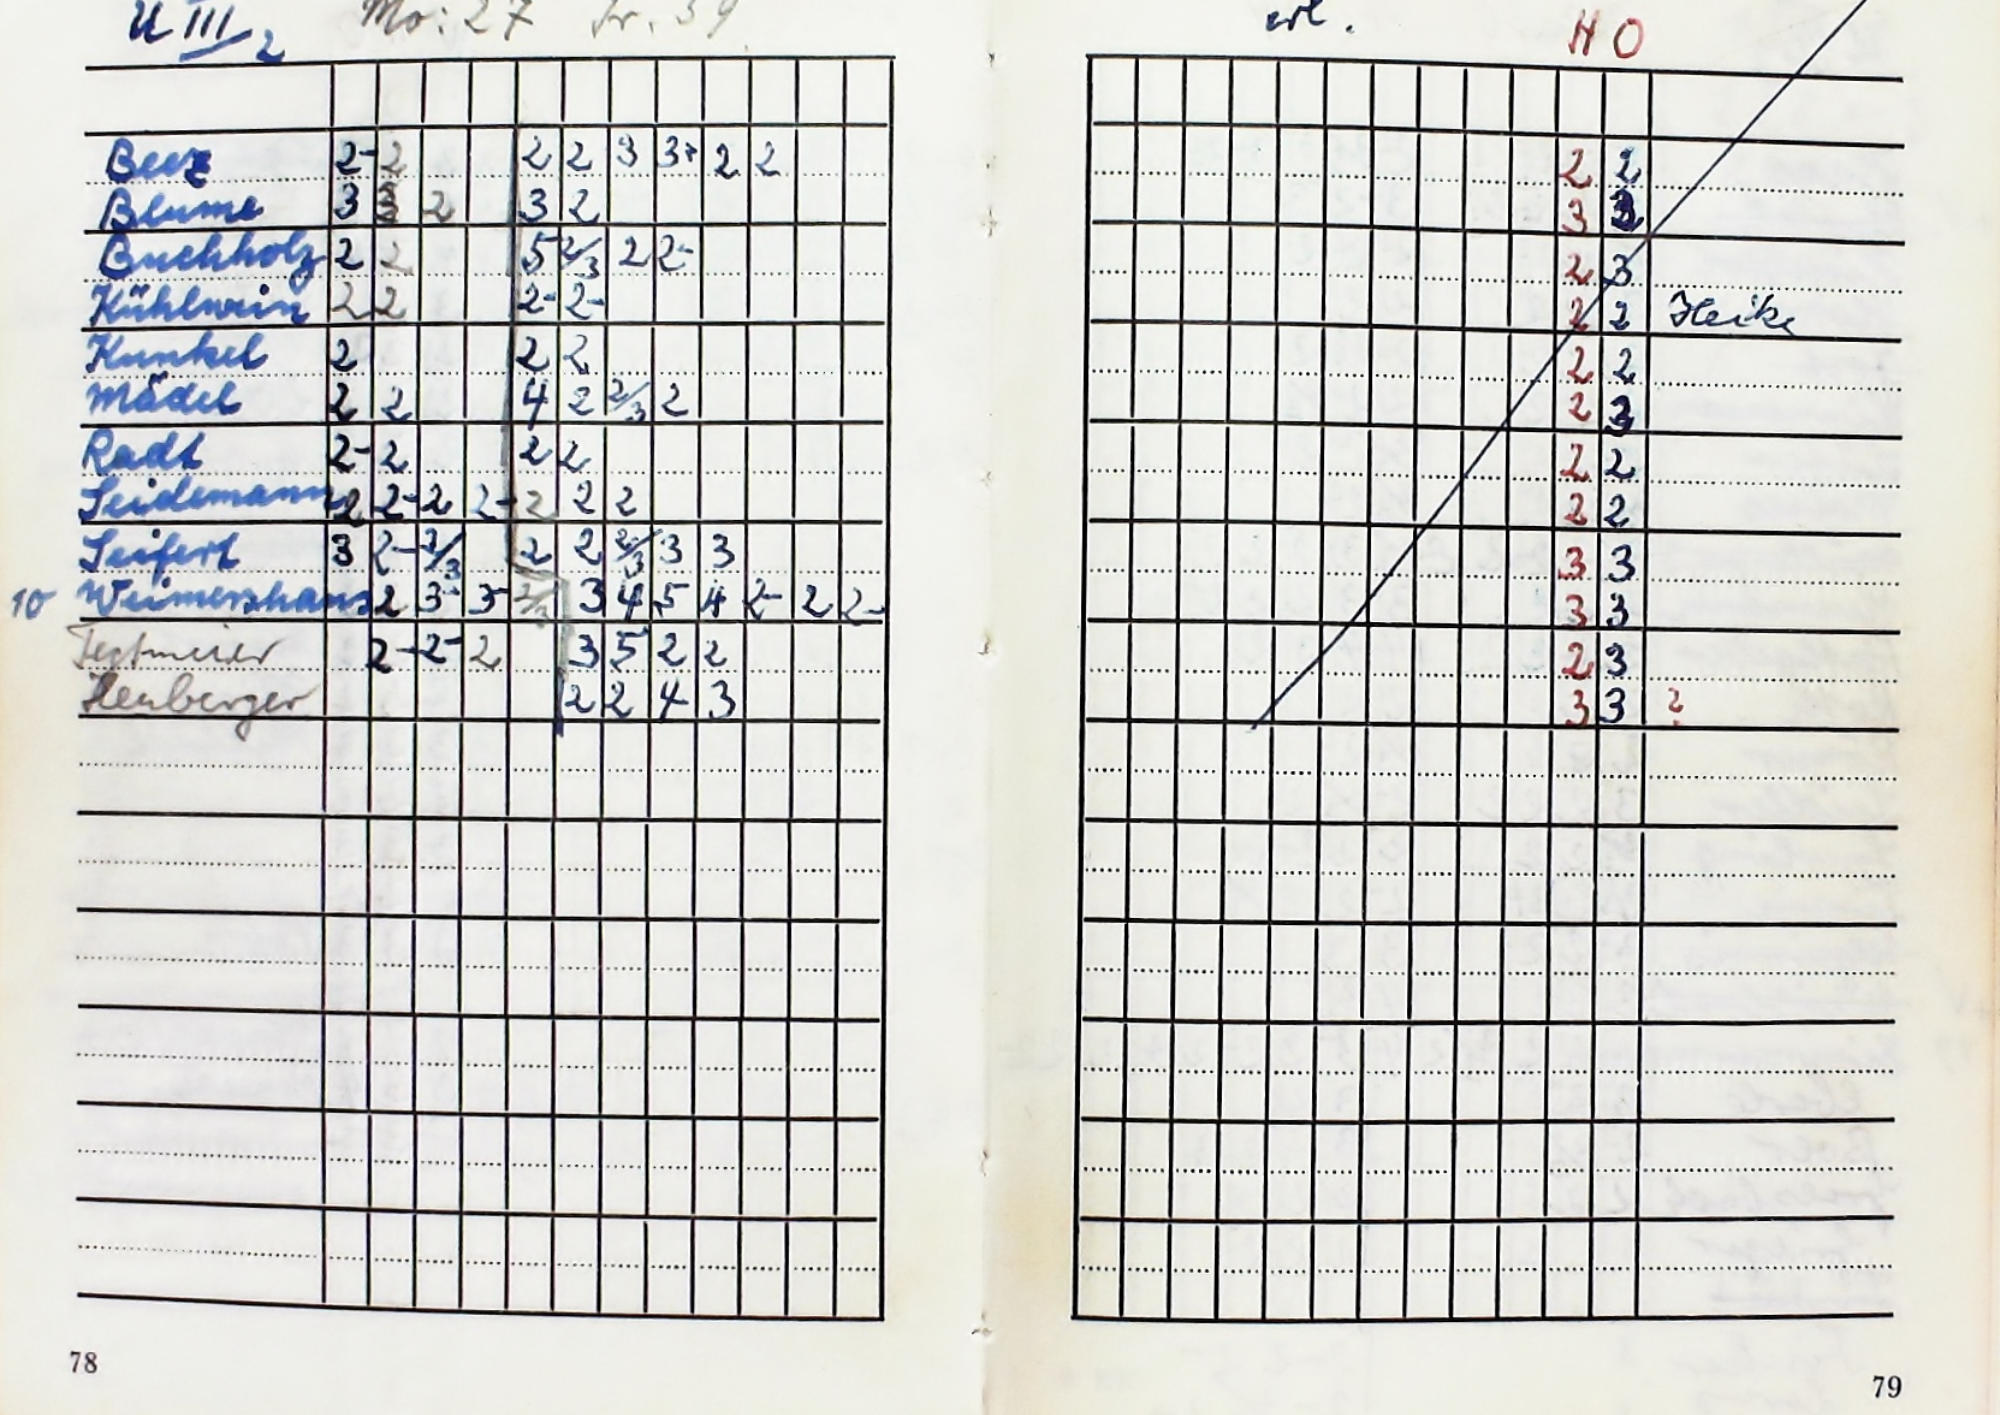 U III 2 Mo: 27 Fr. 39
Beez 2- 2 2 2 3 3+ 2 2
Blume 3 3 2 3 2
Buchholz 2 2 5 2/3 2 2-
Kühlwein 2 2 2- 2-
Kunkel 2 2 2
Mädel 2 2 4 2 2/3 2
Radt 2- 2 2 2
Seidemann 2 2- 2 2- 2 2 2
Seifert 3 2- 2/3 2 2 2/3 3 3
10 Weimershaus 2 3- 3- 2/3 3 4 5 4 2- 2 2-
Tegtmeier 2- 2- 2 3 5 2 2
Heuberger 2 2 4 3
78
erl. H O
2 2
3 3
2 3
2 2 Heike
2 2
2 3
2 2
2 2
3 3
3 3
2 3
3 3 ?
79